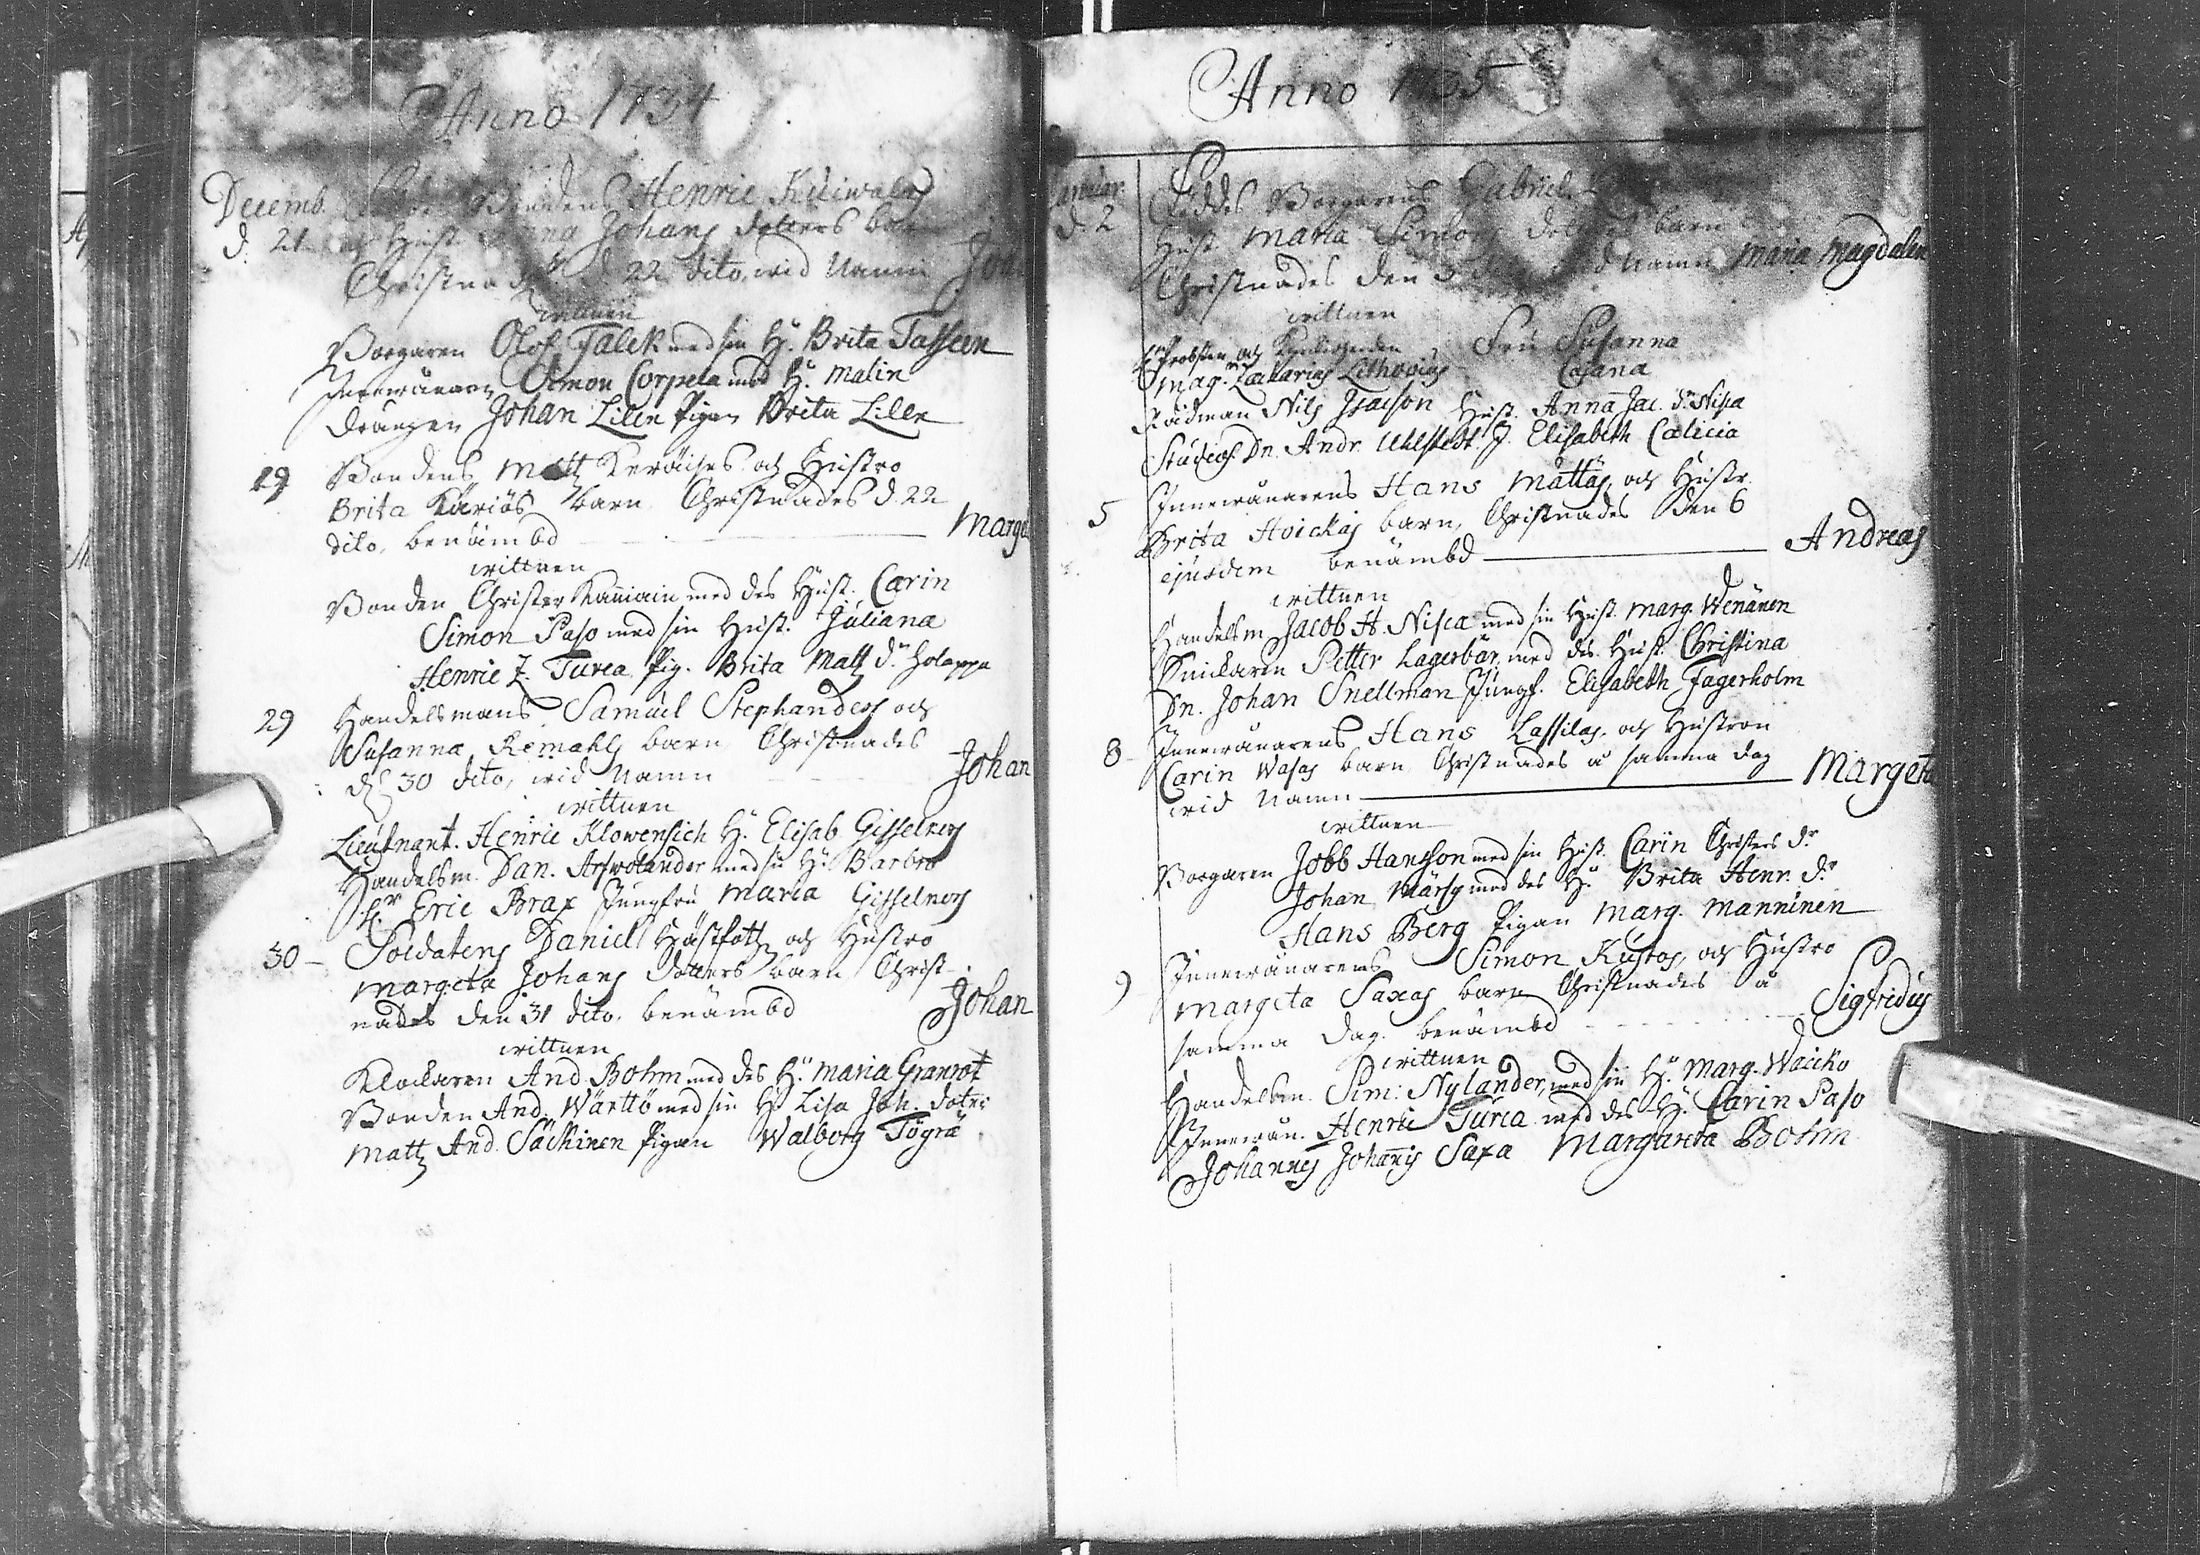 Anno 1734
Decemb. Bondens Henric Kuiwalas
d. 21 och Hust. Anna Johans dotters barn
Christnades d 22 dito, wid Namn Joh
wittnen
Borgaren Olof Falck med sin H. Brita Tassen
Innewånaren Simon Corpela med H. Malin
Drängen Johan Lille Pigan Brita Lille
19 Bondens Matt Keräises och Hustro
Brita Käriös barn Christnades d. 22
dito, benämbd Marge
wittnen
Bonden Christer Kaniain med des Hust. Carin
Simon Paso med sin Hust. Juliana
Henric Z. Turca Pig. Brita Matz dr Holappa
29 Handelsmans Samuel Stephanders och
Susanna Remahls barn Christnades
d. 30 dito, wid Namn Johan
wittnen
Lieutnant. Henric Klowensich H. Elisab. Gisselners
Handelsm. Dan. Arfwolander med sin H. Barbro
Hr Eric Brax Jungfru Maria Gisselners
30 Soldatens Daniel Hästfotz och Hustro
Margeta Johans dotters barn Christ-
nades den 31 dito. benämbd Johan
wittnen
Klockaren And. Bohm med des H. Maria Granrot
Bonden And. Wärttö med sin H. Lisa Joh. dotter
Matz And. Säckinen Pigan Walborg Tögrä
Anno 1735
Januar. Föddes Borgarens Gabriel
d. 2 Hust. Maria Simons dotters barn
Christnades den 3 wid Namn Maria Magdalen
wittnen
Hr Probsten och Kyrckioherden Fru Susanna
Mag. Zacharias Lithovius Cajana
Rådman Nils Isacson Hust. Anna Jac. dr Nisca
Studios. Dn. Andr. Uhlstedt J. Elisabeth Calicia
5 Innewånarens Hans Mattas, och Hustr.
Brita Hoickas barn, Christnades den 6
ejusdem benämbd Andreas
wittnen
Handelsm. Jacob H. Nisca med sin Hust. Marg. Wenänen
Snickaren Petter Lagerbär med des Hust. Christina
Dn. Johan Snellman Jungf. Elisabeth Fagerholm
8 Innewånarens Hans Lassilas, och Hustron
Carin Wasas barn Christnades å samma dag
wid Namn Margeta
wittnen
Borgaren Jobb Hansson med sin Hust. Carin Christers dr
Johan Märsy med des H. Brita Henr. dr
Hans Berg Pigan Marg. Manninen
9 Innewånarens Simon Kustos, och Hustro
Margeta Saxas barn Christnades å
samma dag. benämbd Sigfridus
wittnen
Handelsm. Sim: Nylander, med sin H. Marg. Waicko
Innewån. Henric Turca med des H. Carin Paso
Johannes Johannis Saxa Margareta Bohm